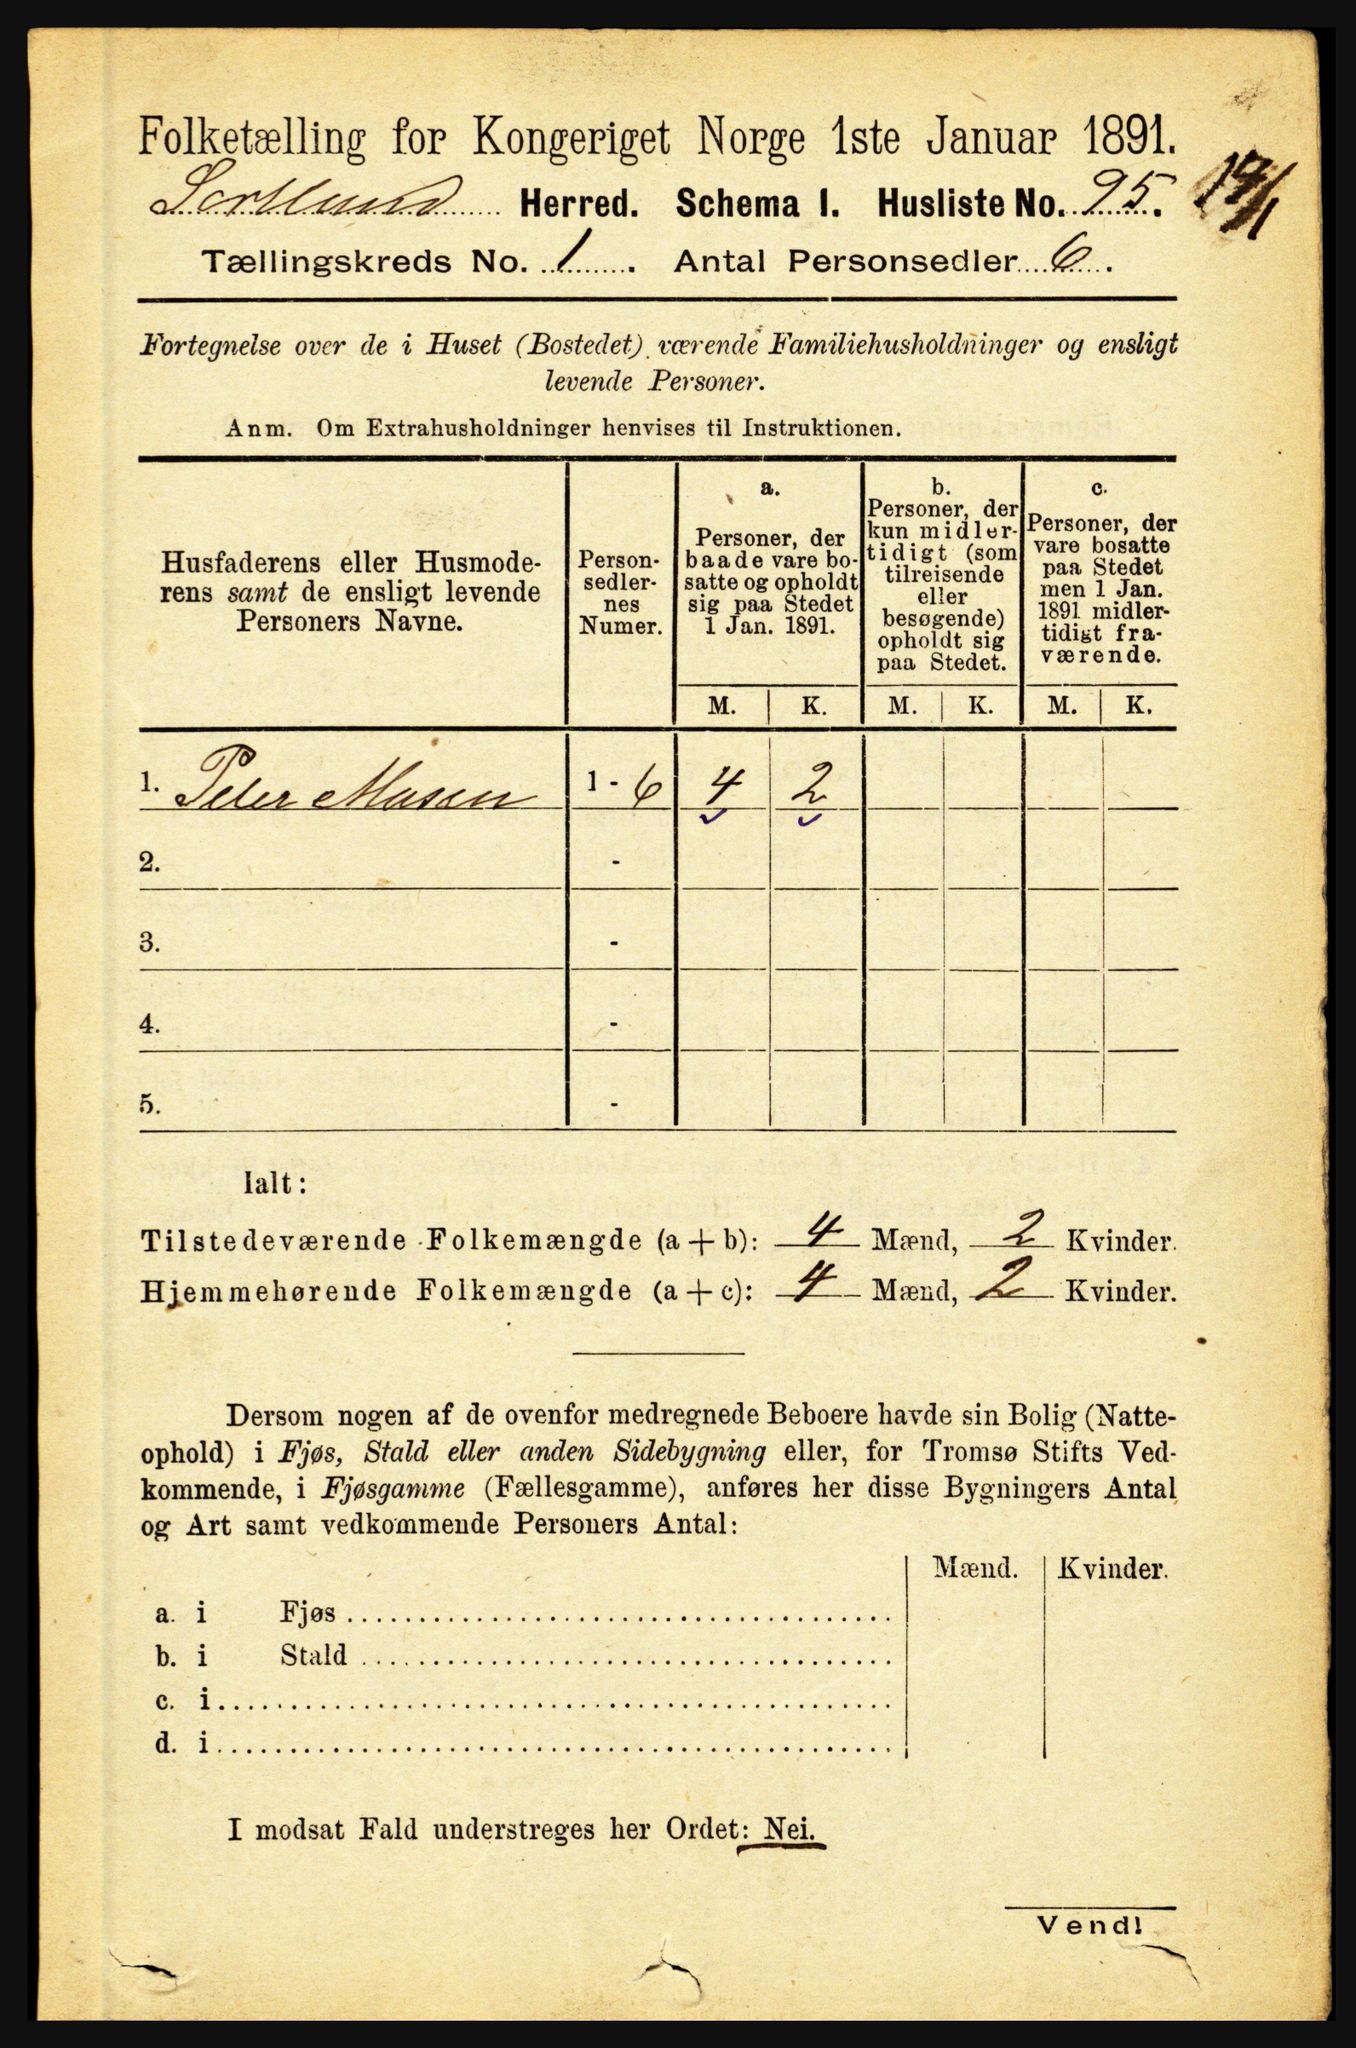 Folketælling for Kongeriget Norge 1ste Januar 1891.
Sortland Herred. Schema I. Husliste No. 95.
Tællingskreds No. 1. Antal Personsedler 6.
Fortegnelse over de i Huset (Bostedet) værende Familiehusholdninger og ensligt
levende Personer.
Anm. Om Extrahusholdninger henvises til Instruktionen.
Husfaderens eller Husmode-
rens samt de ensligt levende
Personers Navne.
Person-
sedler-
nes
Numer.
a.
Personer, der
baade vare bo-
satte og opholdt
sig paa Stedet
1 Jan. 1891.
b.
Personer, der
kun midler-
tidigt (som
tilreisende
eller
besøgende)
opholdt sig
paa Stedet.
c.
Personer, der
vare bosatte
paa Stedet
men 1 Jan.
1891 midler-
tidigt fra-
værende.
M. K. M. K. M. K.
1. Peter 1 - 6 4 2
2. -
3. -
4. -
5. -
Ialt:
Tilstedeværende Folkemængde (a + b): 4 Mænd, 2 Kvinder.
Hjemmehørende Folkemængde (a + c): 4 Mænd, 2 Kvinder.
Dersom nogen af de ovenfor medregnede Beboere havde sin Bolig (Natte-
ophold) i Fjøs, Stald eller anden Sidebygning eller, for Tromsø Stifts Ved-
kommende, i Fjøsgamme (Fællesgamme), anføres her disse Bygningers Antal
og Art samt vedkommende Personers Antal:
Mænd. Kvinder.
a. i Fjøs
b. i Stald
c. i
d. i
I modsat Fald understreges her Ordet: Nei.
Vend!